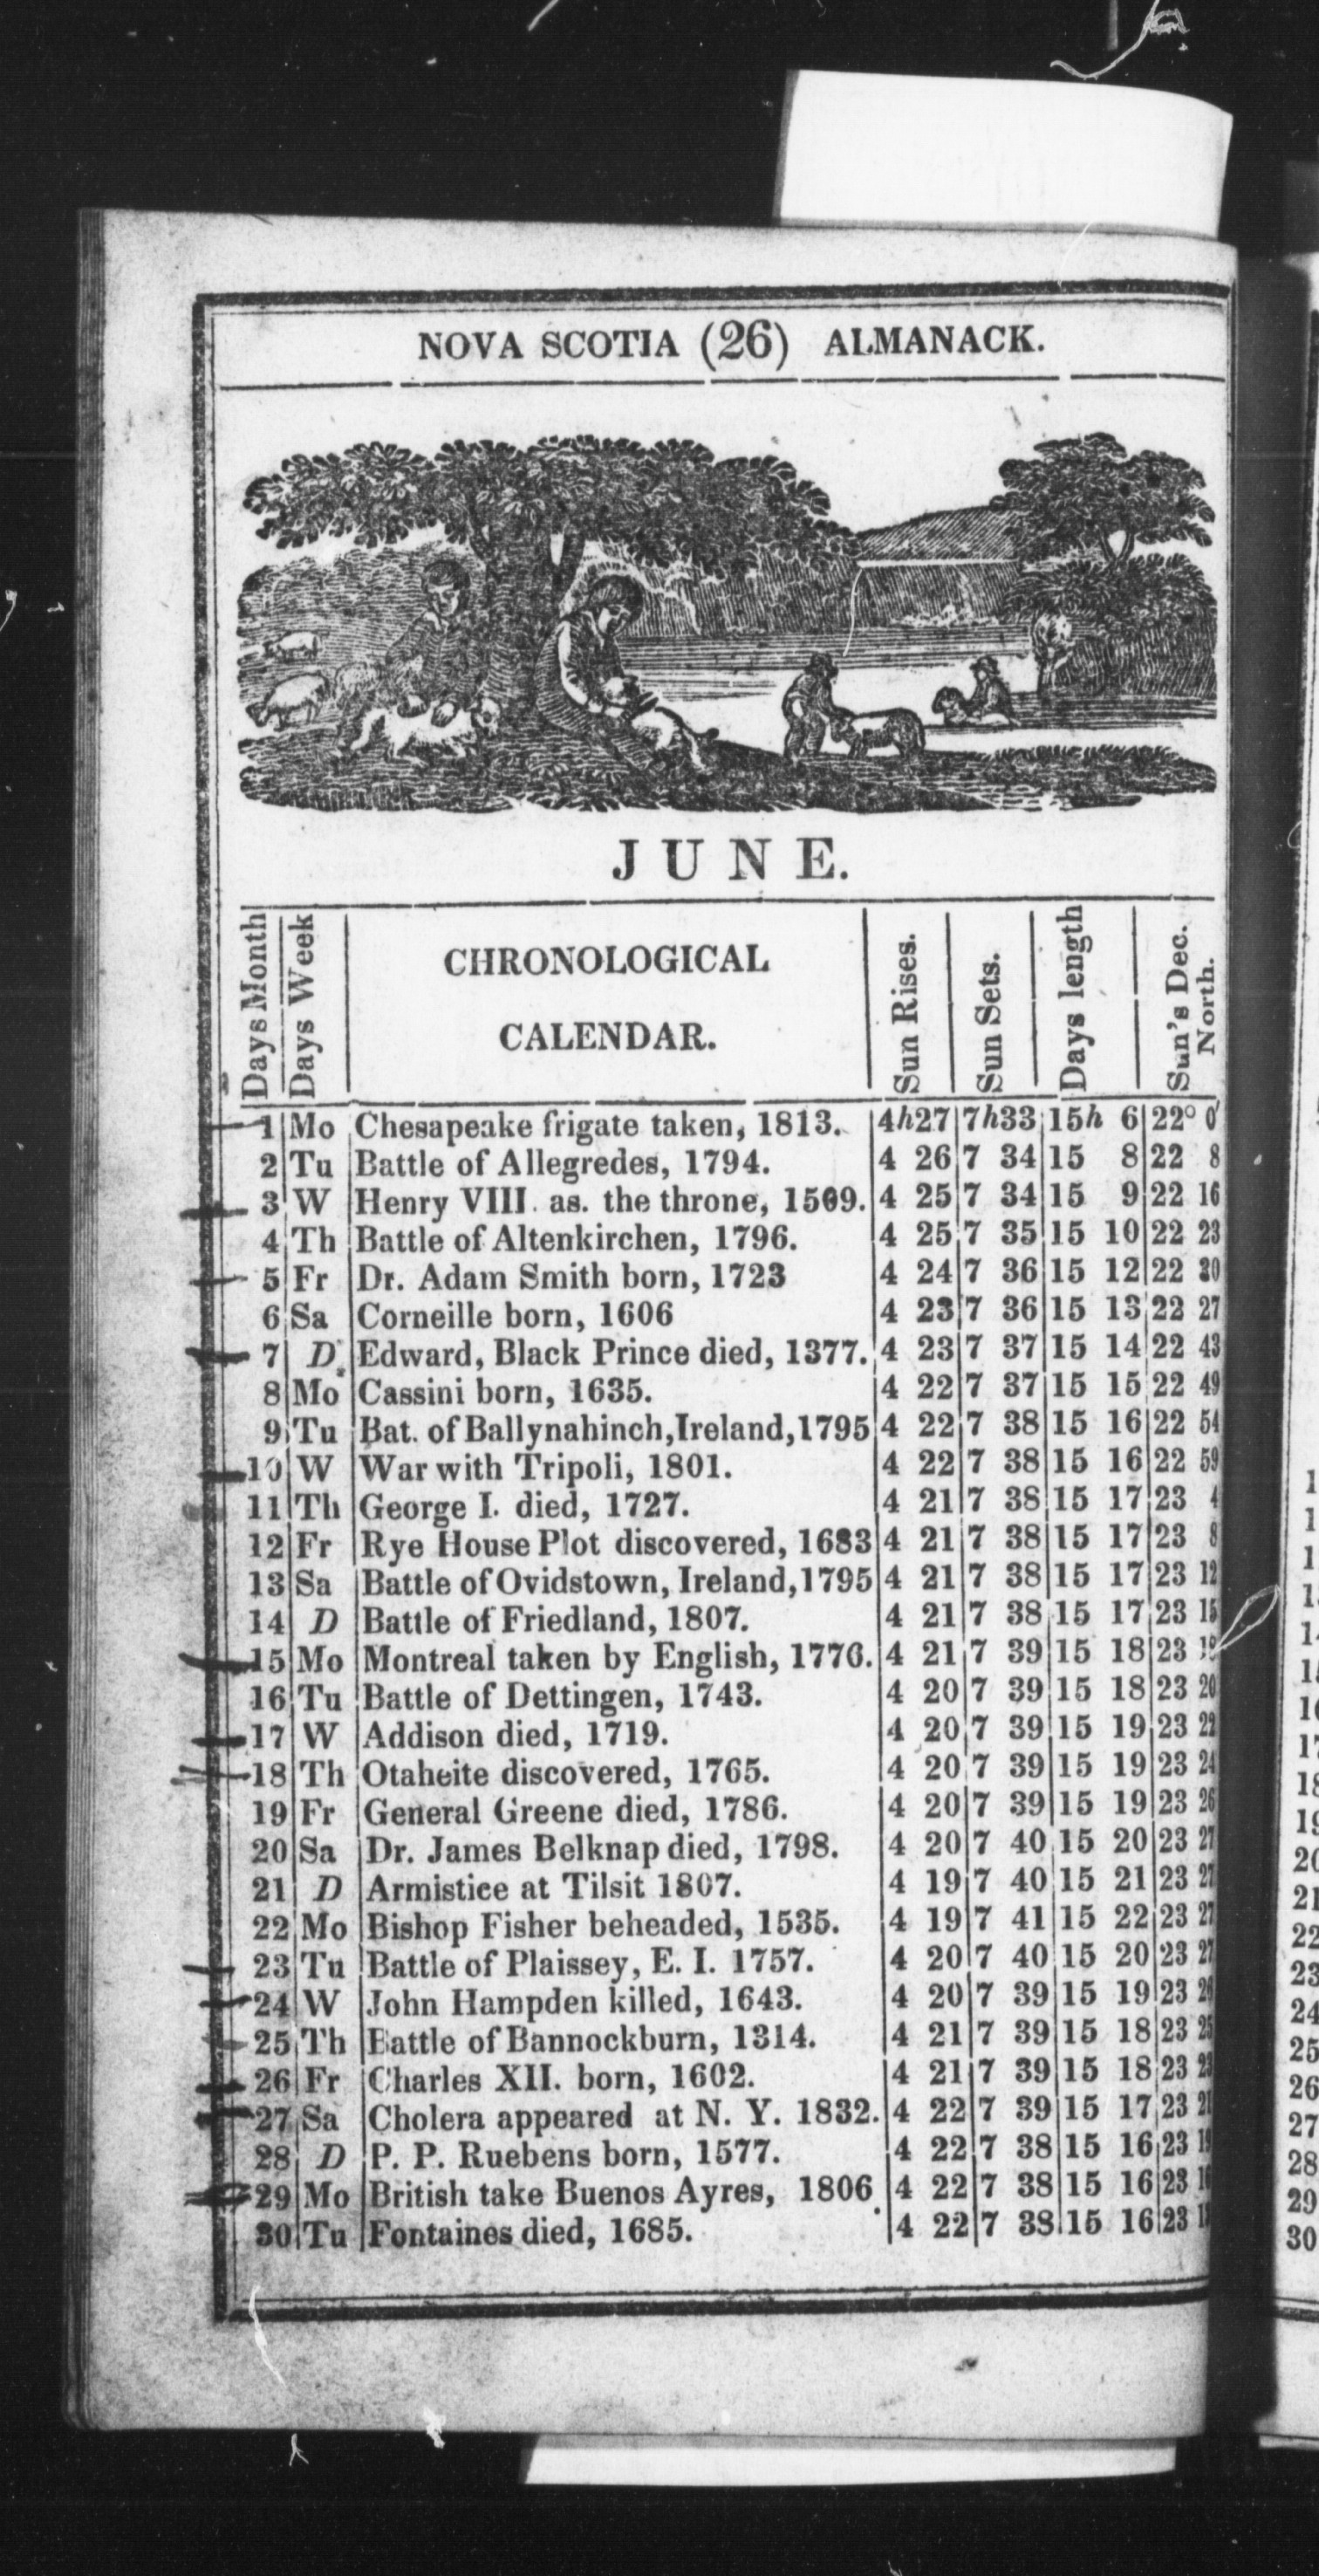 NOVA SCOTIA (26) ALMANACK.
JUNE.
Days Month
Days Week
CHRONOLOGICAL
CALENDAR.
Sun Rises.
Sun Sets.
Days length
Sun's Dec.
North.
1 Mo Chesapeake frigate taken, 1813. 4h27 7h33 15h 6 22° 0'
2 Tu Battle of Allegredes, 1794. 4 26 7 34 15 8 22 8
3 W Henry VIII. as. the throne, 1509. 4 25 7 34 15 9 22 16
4 Th Battle of Altenkirchen, 1796. 4 25 7 35 15 10 22 23
5 Fr Dr. Adam Smith born, 1723 4 24 7 36 15 12 22 30
6 Sa Corneille born, 1606 4 23 7 36 15 13 22 27
7 D Edward, Black Prince died, 1377. 4 23 7 37 15 14 22 43
8 Mo Cassini born, 1635. 4 22 7 37 15 15 22 49
9 Tu Bat. of Ballynahinch, Ireland, 1795 4 22 7 38 15 16 22 54
10 W War with Tripoli, 1801. 4 22 7 38 15 16 22 59
11 Th George I. died, 1727. 4 21 7 38 15 17 23 4
12 Fr Rye House Plot discovered, 1683 4 21 7 38 15 17 23 8
13 Sa Battle of Ovidstown, Ireland, 1795 4 21 7 38 15 17 23 12
14 D Battle of Friedland, 1807. 4 21 7 38 15 17 23 15
15 Mo Montreal taken by English, 1776. 4 21 7 39 15 18 23
16 Tu Battle of Dettingen, 1743. 4 20 7 39 15 18 23 20
17 W Addison died, 1719. 4 20 7 39 15 19 23 22
18 Th Otaheite discovered, 1765. 4 20 7 39 15 19 23 24
19 Fr General Greene died, 1786. 4 20 7 39 15 19 23 26
20 Sa Dr. James Belknap died, 1798. 4 20 7 40 15 20 23 27
21 D Armistice at Tilsit 1807. 4 19 7 40 15 21 23 27
22 Mo Bishop Fisher beheaded, 1535. 4 19 7 41 15 22 23 27
23 Tu Battle of Plaissey, E. I. 1757. 4 20 7 40 15 20 23 27
24 W John Hampden killed, 1643. 4 20 7 39 15 19 23 26
25 Th Battle of Bannockburn, 1314. 4 21 7 39 15 18 23 25
26 Fr Charles XII. born, 1602. 4 21 7 39 15 18 23 23
27 Sa Cholera appeared at N. Y. 1832. 4 22 7 39 15 17 23 21
28 D P. P. Ruebens born, 1577. 4 22 7 38 15 16 23 19
29 Mo British take Buenos Ayres, 1806 4 22 7 38 15 16 23
30 Tu Fontaines died, 1685. 4 22 7 38 15 16 23